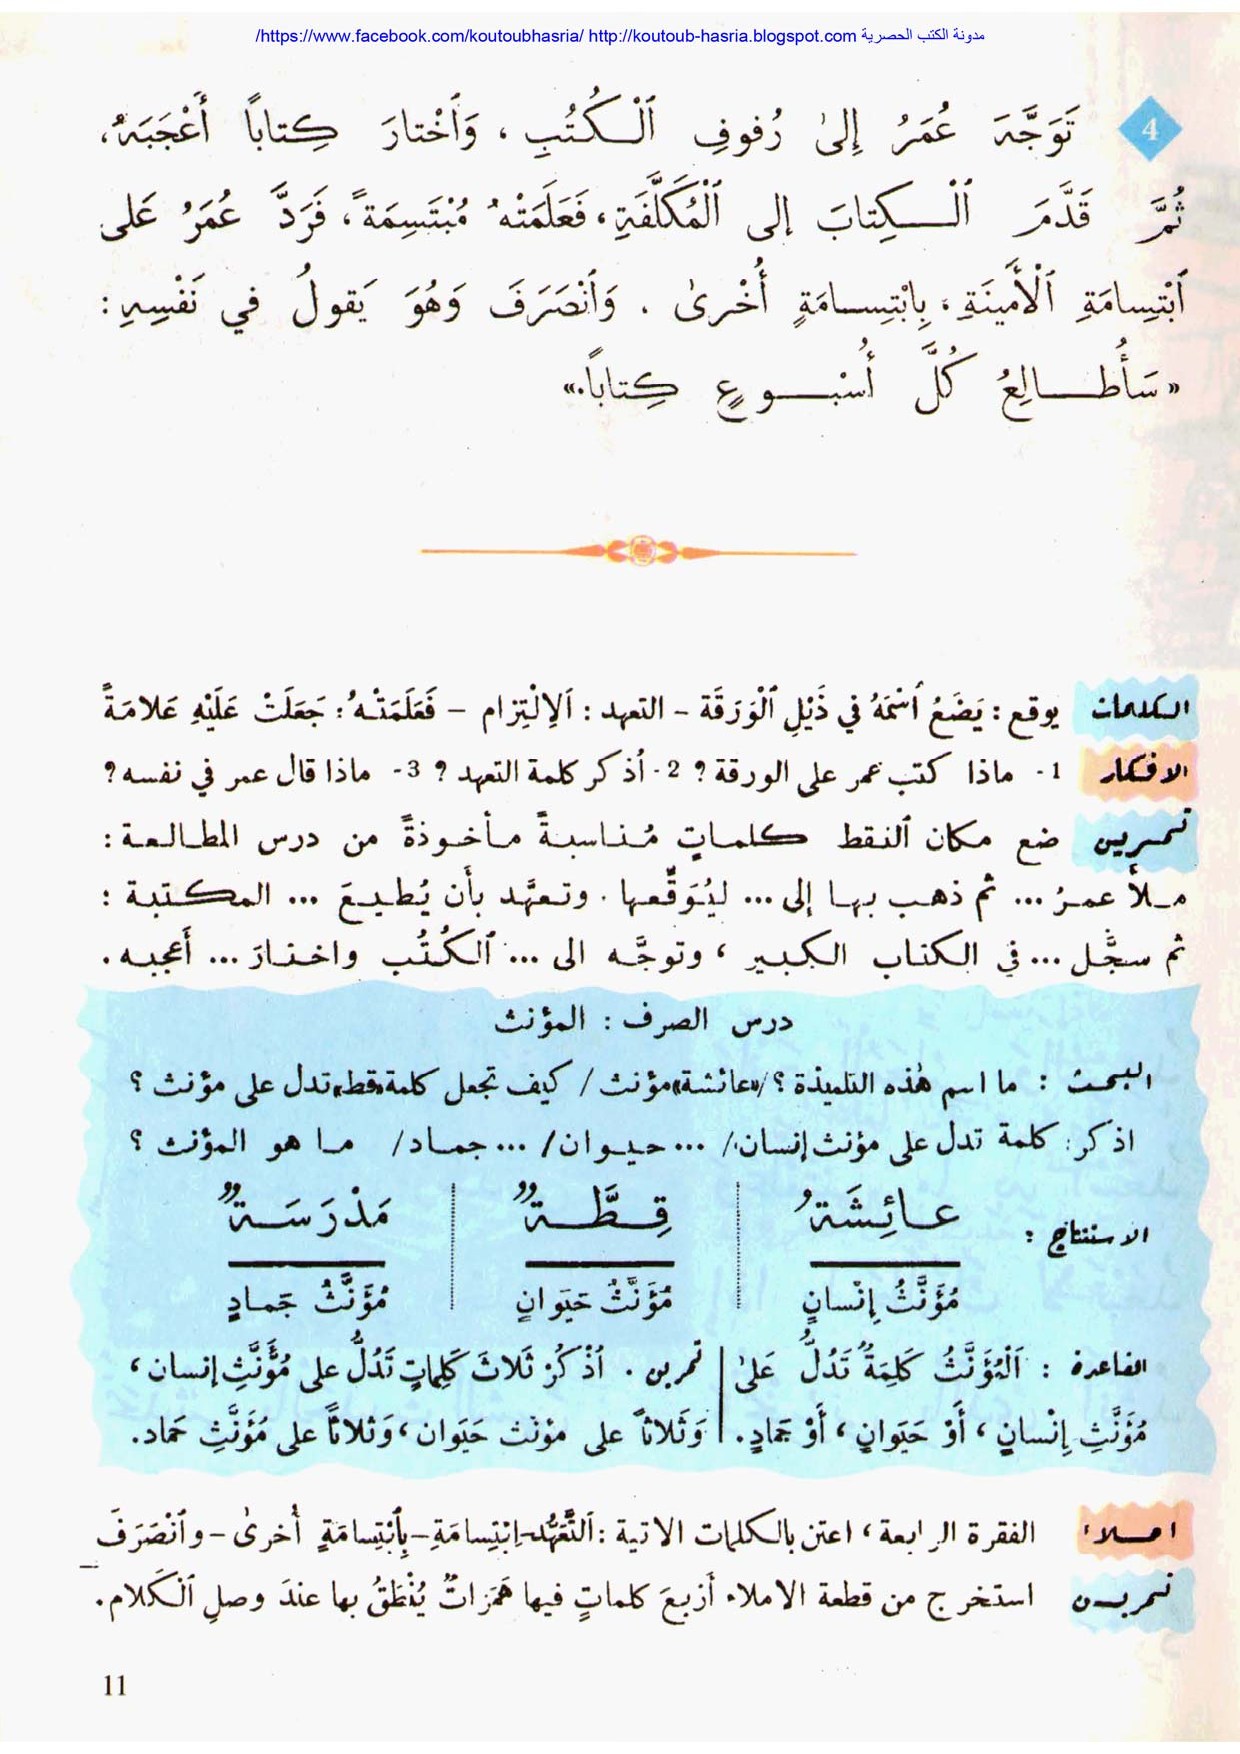 https://www.facebook.com/koutoubhasria/ http://koutoub-hasria.blogspot.com مدونة الكتب الحصرية/
4 تَوَجَّهَ عُمَرُ إِلىٰ رُفوفِ ٱلْكُتُبِ ، وَٱخْتارَ كِتاباً أَعْجَبَهُ،
ثُمَّ قَدَّمَ ٱلْكِتابَ إِلى ٱلْمُكَلَّفَةِ، فَعَلَمَتْهُ مُبْتَسِمَةً، فَرَدَّ عُمَرُ عَلى
ٱبْتِسامَةِ ٱلْأَمينَةِ، بِابْتِسامَةٍ أُخْرىٰ . وَٱنْصَرَفَ وَهُوَ يَقولُ في نَفْسِهِ :
«سَأُطالِعُ كُلَّ أُسْبوعٍ كِتاباً.»
الكلمات يوقع : يَضَعُ ٱسْمَهُ في ذَيْلِ ٱلْوَرَقَة - التعهد : اَلاِلْتِزام - فَعَلَمَتْهُ : جَعَلَتْ عَلَيْهِ عَلامَةً
الافكار 1- ماذا كتب عمر على الورقة ؟ 2- أذكر كلمة التعهد ؟ 3- ماذا قال عمر في نفسه ؟
تمرين ضع مكان ٱلنقط كلماتٍ مُناسبةً مأخوذةً من درس المطالعة :
ملأ عمرُ ... ثم ذهب بها إلى ... ليُوَقِّعها . وتعهَّد بأَن يُطيعَ ... المكتبة :
ثم سجَّل ... في الكتاب الكبير ، وتوجَّه الى ... ٱلكُتُب واختارَ ... أَعجبه .
درس الصرف : المؤنث
البحث : ما اسم هٰذه التلميذة ؟ /«عائشة» مؤنث / كيف تجعل كلمة «قط» تدل على مؤنث ؟
اذكر : كلمة تدل على مؤنث إنسان / ... حيوان / ... جماد / ما هو المؤنث ؟
الاستنتاج : عائِشَةُ قِطَّةٌ مَدْرَسَةٌ
مُؤَنَّثُ إِنْسانٍ مُؤَنَّثُ حَيَوانٍ مُؤَنَّثُ جَمادٍ
القاعدة : ٱلْمُؤَنَّثُ كَلِمَةٌ تَدُلُّ عَلىٰ
مُؤَنَّثِ إِنْسانٍ ، أَوْ حَيَوانٍ ، أَوْ جَمادٍ .
تمرين . اَذْكُرْ ثَلاثَ كَلِماتٍ تَدُلُّ على مُؤَنَّثِ إنسان ،
وَثَلاثاً على مؤنث حَيَوان ، وَثلاثاً على مُؤَنَّثِ جماد .
املاء الفقرة الرابعة ، اعتن بالكلمات الاتية : اَلتَّعَهُّد - اِبْتِسامَةِ - بِٱبْتِسامَةٍ أخرىٰ - وٱنْصَرَفَ
تمرين استخرج من قطعة الاملاء أربعَ كلماتٍ فيها هَمَزاتٌ يُنْطَقُ بها عندَ وصلِ ٱلْكَلام .
11